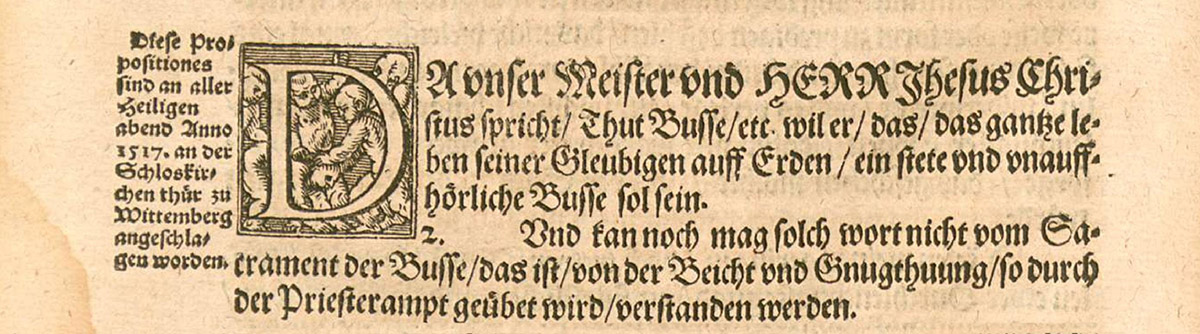 Diese Pro-
positiones
sind an aller
Heiligen
abend Anno
1517. an der
Schloskir-
chen thür zu
Wittemberg
angeschla-
gen worden.
DA vnser Meister vnd HERR Jhesus Chri-
stus spricht/ Thut Busse/etc. wil er/ das/ das gantze le-
ben seiner Gleubigen auff Erden / ein stete vnd vnauff-
hörliche Busse sol sein.
2. Vnd kan noch mag solch wort nicht vom Sa-
crament der Busse/das ist/von der Beicht vnd Gnugthuung/so durch
der Priesterampt geübet wird/verstanden werden.